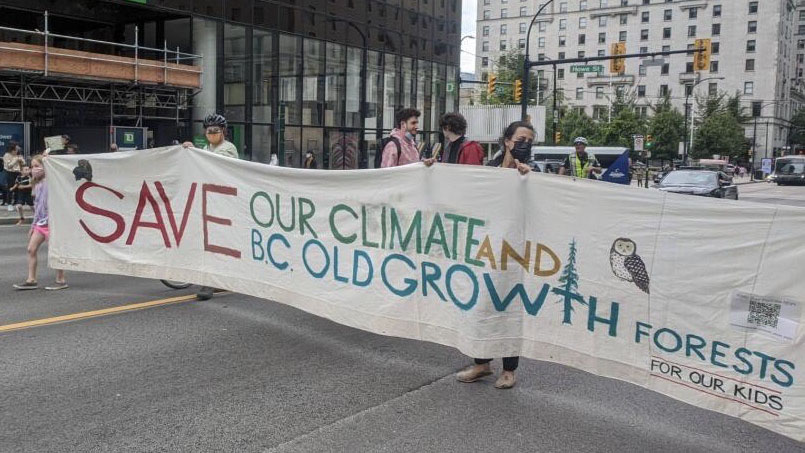 SAVE OUR CLIMATE AND
B.C. OLD GROWTH FORESTS
FOR OUR KIDS
Howe St
TD